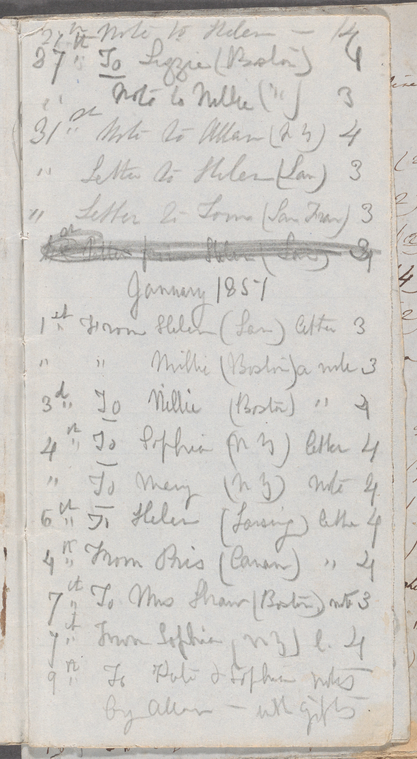 Note to Helen — 14
27th To Lizzie (Boston) 4
" Note to Nellie (") 3
31st Note to Allan (N Y) 4
" Letter to Helen (Lan) 3
" Letter to Lome (San Fran) 3
January 1857
1st " From Helen (Lan) letter 3
" " Millie (Boston) a note 3
3d " To Nellie (Boston) " 4
4th " To Sophia (N Y) letter 4
" To Mary (N Y) note 4
6th " To Helen (Lansing) letter 4
4th From Pris (Canan) " 4
7th " To Mrs Shaw (Boston) note 3
7th " From Sophia, N Y) l. 4
9th To Kate & Sophia notes
by Allan — with gifts